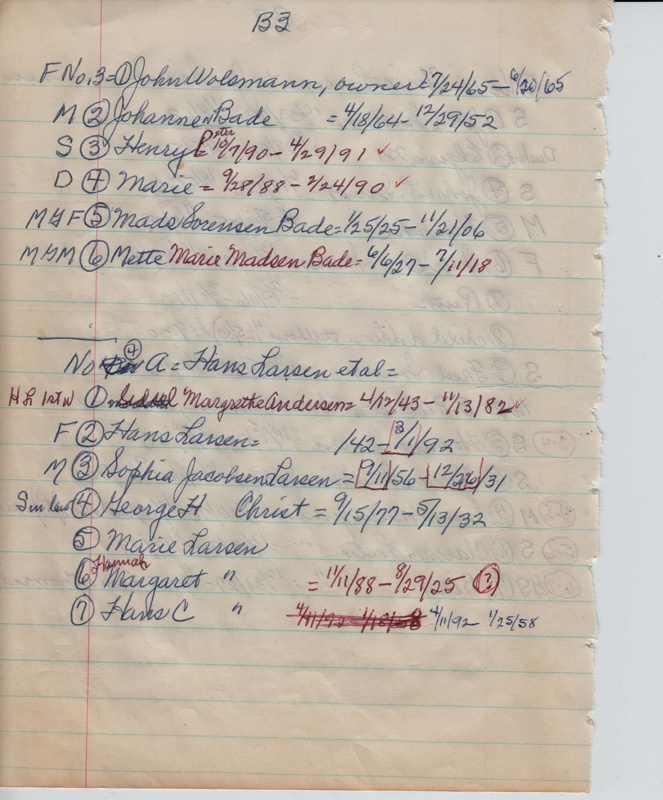 B3
F No. 3 = ① John Wolsmann, owner 7/24/65 - 6/20/65
M ② Johanne Bade = 4/18/64 - 12/29/52
S ③ Henry Peter = 10/7/90 - 4/29/91 ✓
D ④ Marie = 9/28/88 - 2/24/90 ✓
M & F ⑤ Mads Sorensen Bade = 1/25/25 - 11/21/06
M & M ⑥ Mette Marie Madsen Bade = 6/6/27 - 7/11/18
No ④ A = Hans Larsen et al =
H L 1st W ① Margrethe Andersen = 4/12/43 - 11/13/82 ✓
F ② Hans Larsen = /42 - 3/1/92
M ③ Sophia Jacobsen Larsen = 9/11/56 - 12/26/31
S in law ④ George H Christ = 9/15/77 - 5/13/32
⑤ Marie Larsen
⑥ Hannah Margaret " = 11/11/88 - 8/29/25 ③
⑦ Hans C " 4/11/92 - 1/25/58